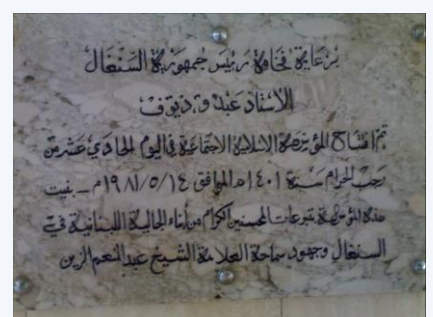 برعاية فخامة رئيس جمهورية السنغال
الاستاذ عبدو ديوف
تم افتتاح المؤسسة الاسلامية الاجتماعية في اليوم الحادي عشر من
رجب الحرام سنة ١٤٠١ هـ الموافق ١٩٨١/٥/١٤ م - بنيت
هذه المؤسسة بتبرعات المحسنين الكرام من أبناء الجالية اللبنانية في
السنغال وجهود سماحة العلامة الشيخ عبد المنعم الزين